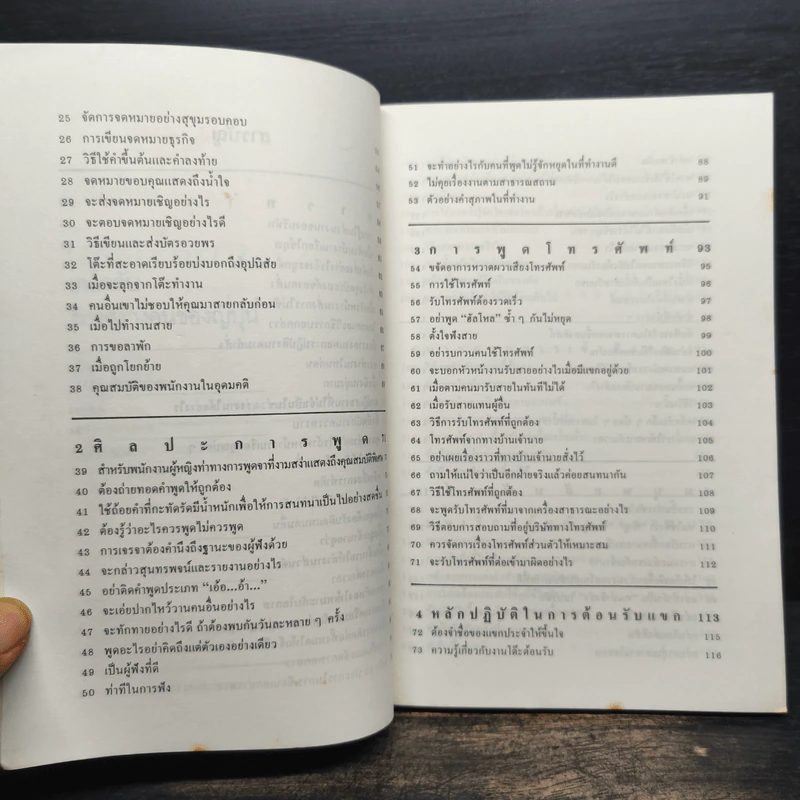 25 จัดการจดหมายอย่างสุขุมรอบคอบ
26 การเขียนจดหมายธุรกิจ
27 วิธีใช้คำขึ้นต้นและคำลงท้าย
28 จดหมายขอบคุณแสดงถึงน้ำใจ
29 จะส่งจดหมายเชิญอย่างไร
30 จะตอบจดหมายเชิญอย่างไรดี
31 วิธีเขียนและส่งบัตรอวยพร
32 โต๊ะที่สะอาดเรียบร้อยบ่งบอกถึงอุปนิสัย
33 เมื่อจะลุกจากโต๊ะทำงาน
34 คนอื่นเขาไม่ชอบให้คุณมาสายกลับก่อน
35 เมื่อไปทำงานสาย
36 การขอลาพัก
37 เมื่อถูกโยกย้าย
38 คุณสมบัติของพนักงานในอุดมคติ
2 ศิลปะการพูด
39 สำหรับพนักงานผู้หญิงท่าทางการพูดจาที่งามสง่าแสดงถึงคุณสมบัติ
40 ต้องถ่ายทอดคำพูดให้ถูกต้อง
41 ใช้ถ้อยคำที่กะทัดรัดมีน้ำหนักเพื่อให้การสนทนาเป็นไปอย่าง
42 ต้องรู้ว่าอะไรควรพูดไม่ควรพูด
43 การเจรจาต้องคำนึงถึงฐานะของผู้ฟังด้วย
44 จะกล่าวสุนทรพจน์และรายงานอย่างไร
45 อย่าติดคำพูดประเภท “เอ้อ...อ้า...”
46 จะเอ่ยปากไหว้วานคนอื่นอย่างไร
47 จะทักทายอย่างไรดี ถ้าต้องพบกันวันละหลาย ๆ ครั้ง
48 พูดอะไรอย่าคิดถึงแต่ตัวเองอย่างเดียว
49 เป็นผู้ฟังที่ดี
50 ท่าทีในการฟัง
51 จะทำอย่างไรกับคนที่พูดไม่รู้จักหยุดในที่ทำงานดี 88
52 ไม่คุยเรื่องงานตามสาธารณสถาน 89
53 ตัวอย่างคำสุภาพในที่ทำงาน 91
3 การพูดโทรศัพท์ 93
54 ขจัดอาการหวาดผวาเสียงโทรศัพท์ 95
55 การใช้โทรศัพท์ 95
56 รับโทรศัพท์ต้องรวดเร็ว 97
57 อย่าพูด “ฮัลโหล” ซ้ำ ๆ กันไม่หยุด 98
58 ตั้งใจฟังสาย 99
59 อย่ารบกวนคนใช้โทรศัพท์ 100
60 จะบอกหัวหน้างานรับสายอย่างไรเมื่อมีแขกอยู่ด้วย 101
61 เมื่อตามคนมารับสายในทันทีไม่ได้ 102
62 เมื่อรับสายแทนผู้อื่น 103
63 วิธีการรับโทรศัพท์ที่ถูกต้อง 104
64 โทรศัพท์จากทางบ้านเจ้านาย 105
65 อย่าเผยเรื่องราวที่ทางบ้านเจ้านายสั่งไว้ 106
66 ถามให้แน่ใจว่าเป็นอีกฝ่ายจริงแล้วค่อยสนทนากัน 107
67 วิธีใช้โทรศัพท์ที่ถูกต้อง 108
68 จะพูดรับโทรศัพท์ที่มาจากเครื่องสาธารณะอย่างไร 109
69 วิธีตอบการสอบถามที่อยู่บริษัททางโทรศัพท์ 110
70 ควรจัดการเรื่องโทรศัพท์ส่วนตัวให้เหมาะสม 111
71 จะรับโทรศัพท์ที่ต่อเข้ามาผิดอย่างไร 112
4 หลักปฏิบัติในการต้อนรับแขก 113
72 ต้องจำชื่อของแขกประจำให้ขึ้นใจ 115
73 ความรู้เกี่ยวกับงานโต๊ะต้อนรับ 116